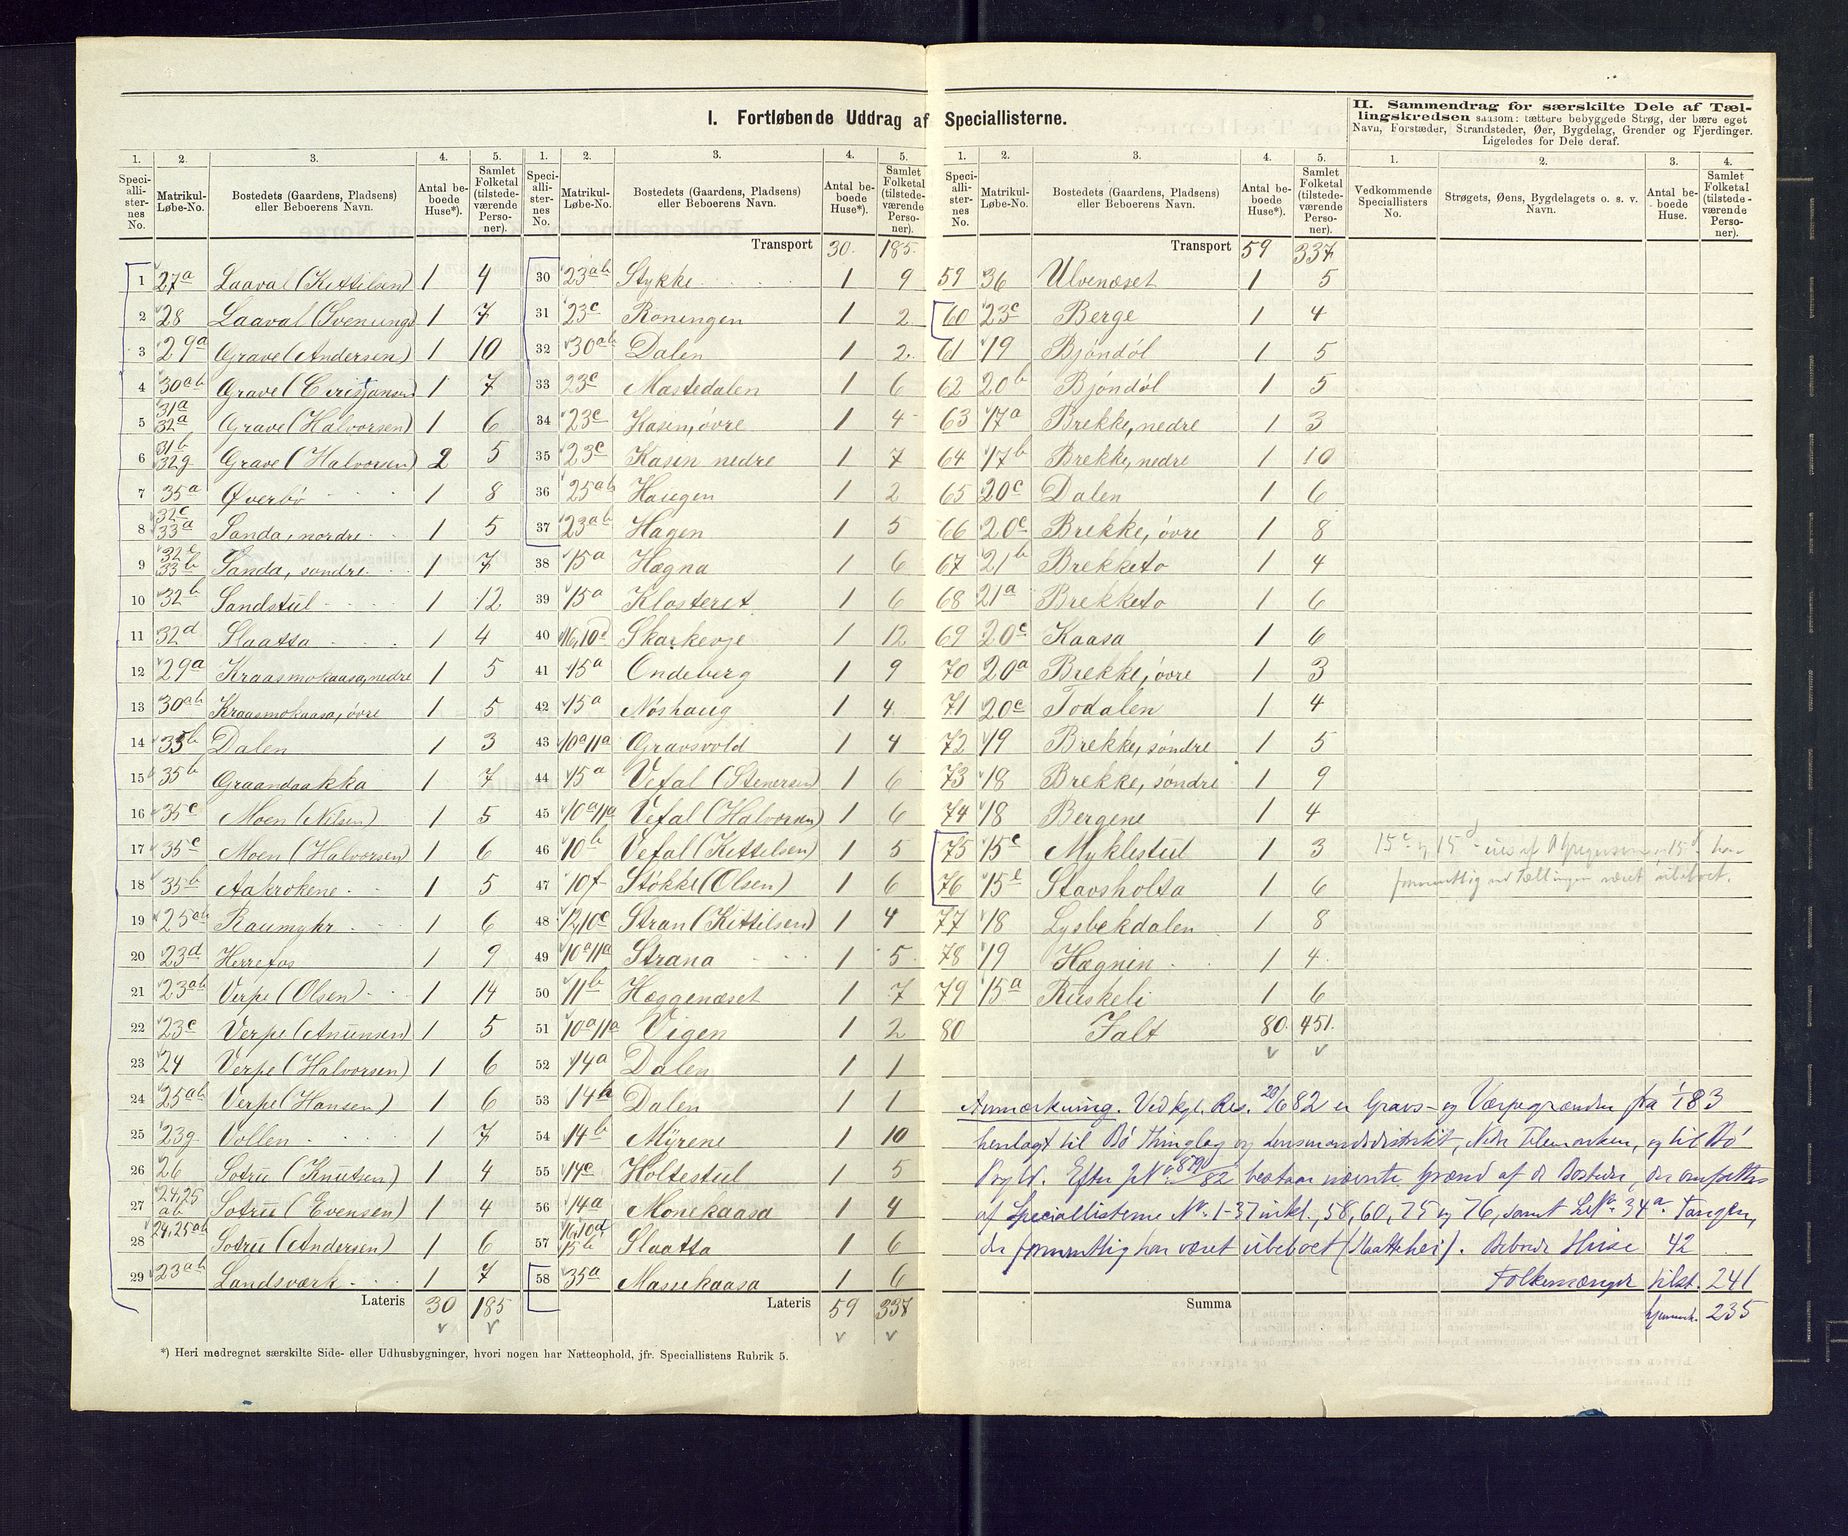 I. Fortløbende Uddrag af Speciallisterne.
II. Sammendrag for særskilte Dele af Tællingskredsen saasom: tættere bebyggede Strøg, der bære eget Navn, Forstæder, Strandsteder, Øer, Bygdelag, Grender og Fjerdinger. Ligeledes for Dele deraf.
1. 2. 3. 4. 5. 1. 2. 3. 4. 5. 1. 2. 3. 4. 5. 1. 2. 3. 4.
Speciallisternes No. Matrikul-Løbe-No. Bostedets (Gaardens, Pladsens) eller Beboerens Navn. Antal beboede Huse*). Samlet Folketal (tilstedeværende Personer).
Speciallisternes No. Matrikul-Løbe-No. Bostedets (Gaardens, Pladsens) eller Beboerens Navn. Antal beboede Huse*). Samlet Folketal (tilstedeværende Personer).
Speciallisternes No. Matrikul-Løbe-No. Bostedets (Gaardens, Pladsens) eller Beboerens Navn. Antal beboede Huse*). Samlet Folketal (tilstedeværende Personer).
Vedkommende Speciallisters No. Strøgets, Øens, Bygdelagets o. s. v. Navn. Antal beboede Huse. Samlet Folketal (tilstedeværende Personer).
1 27a Laaval (Kittilsen) 1 4
2 28 Laaval (Svenungs 1 7
3 29a Grave (Andersen) 1 10
4 30ab Grave (Cristjansen 1 7
5 31a 32a Grave (Halvorsen) 1 6
6 31b 32g Grave (Halvorsen) 2 5
7 35a Øverbø 1 8
8 32c 33a Sanda, nordre 1 5
9 32e 33b Sanda, søndre 1 7
10 32b Sandstul 1 12
11 32d Slaatta 1 4
12 29a Kraasmokaasa, nedre 1 5
13 30ab Kraasmokaasa, øvre 1 5
14 35b Dalen 1 3
15 35b Graandaakka 1 7
16 35c Moen (Nilsen) 1 5
17 35c Moen (Halvorsen) 1 6
18 35b Aakrokene 1 5
19 25ab Raumyhr 1 6
20 23d Herrefos 1 9
21 23ab Verpe (Olsen) 1 14
22 23c Verpe (Anunsen) 1 5
23 24 Verpe (Halvorsen) 1 6
24 25ab Verpe (Hansen) 1 6
25 23g Vollen 1 7
26 26 Sotru (Knutsen) 1 4
27 24,25 ab Sotru (Evensen) 1 4
28 24,25ab Sotru (Andersen) 1 6
29 23ab Landsværk 1 7
Lateris 30 185
Transport 30. 185.
30 23ab Stykke 1 9
31 23c Roningen 1 2
32 30ab Dalen 1 2.
33 23c Mastedalen 1 6
34 23c Kasen, øvre 1 4
35 23c Kasen nedre 1 7
36 25ab Haugen 1 2
37 23ab Hagen 1 5
38 15a Hægna 1 6
39 15a Klosteret 1 6
40 16,10d Skarkevje 1 12
41 15a Ondeberg 1 9
42 15a Nøshaug 1 4
43 10a11a Gravsvold 1 4
44 15a Vefal (Stenersen) 1 6
45 10a11a Vefal (Halvorsen) 1 6
46 10b Vefal (Kittilsen) 1 5
47 10f Støkke (Olsen) 1 6
48 12,10c Stran (Kittilsen) 1 4
49 10a11a Strana 1 5
50 11b Hæggenæset 1 7
51 10a11a Vigen 1 2
52 14a Dalen 1 1
53 14b Dalen 1 1
54 14b Myrene 1 10
55 14c Holtestul 1 5
56 14a Monekaasa 1 4
57 16,10d 15b Slaatta 1 6
58 35a Massekaasa 1 6
Lateris 59 337
Transport 59 337
59 36 Ulvenæset 1 5
60 23c Berge 1 4
61 19 Bjøndøl 1 5
62 20b Bjøndøl 1 5
63 17a Brekke, nedre 1 3
64 17b Brekke, nedre 1 10
65 20c Dalen 1 6
66 20c Brekke, øvre 1 8
67 21b Brekketo 1 4
68 21a Brekketo 1 6
69 20c Kaasa 1 6
70 20a Brekke, øvre 1 3
71 20c Todalen 1 4
72 19 Brekke, søndre 1 5
73 18 Brekke, søndre 1 9
74 18 Bergene 1 4
75 15c Myklestul 1 3
76 15e Stavsholta 1 6
77 18 Lysbekdalen 1 8
78 19 Hægnin 1 4
79 15a Ruskeli 1 6
80 Ialt 80. 451.
15c og 15d 15d har
formentlig ved Tællingen været ubeboet.
Anmærkning. Ved kgl. Res. 20/6 82 er Gravs- og Værpegrænden fra 1/1 83
henlagt til Bø Thinglag og Lensmandsdistrikt, Nedre Telemarken, og til Bø
Prgld. Efter 82 bestaar nævnte Grænd af de Bosteder, der omfattes
af Speciallisterne No. 1-37 inkl., 58, 60, 75 og 76, samt LNo. 34a Tangen,
der formentlig har været ubeboet (Slaattehei). Beboede Huse 42
Folkemængde tilst. 241
hjemmeh. 235
Summa
*) Heri medregnet særskilte Side- eller Udhusbygninger, hvori nogen har Natteophold, jfr. Speciallistens Rubrik 5.